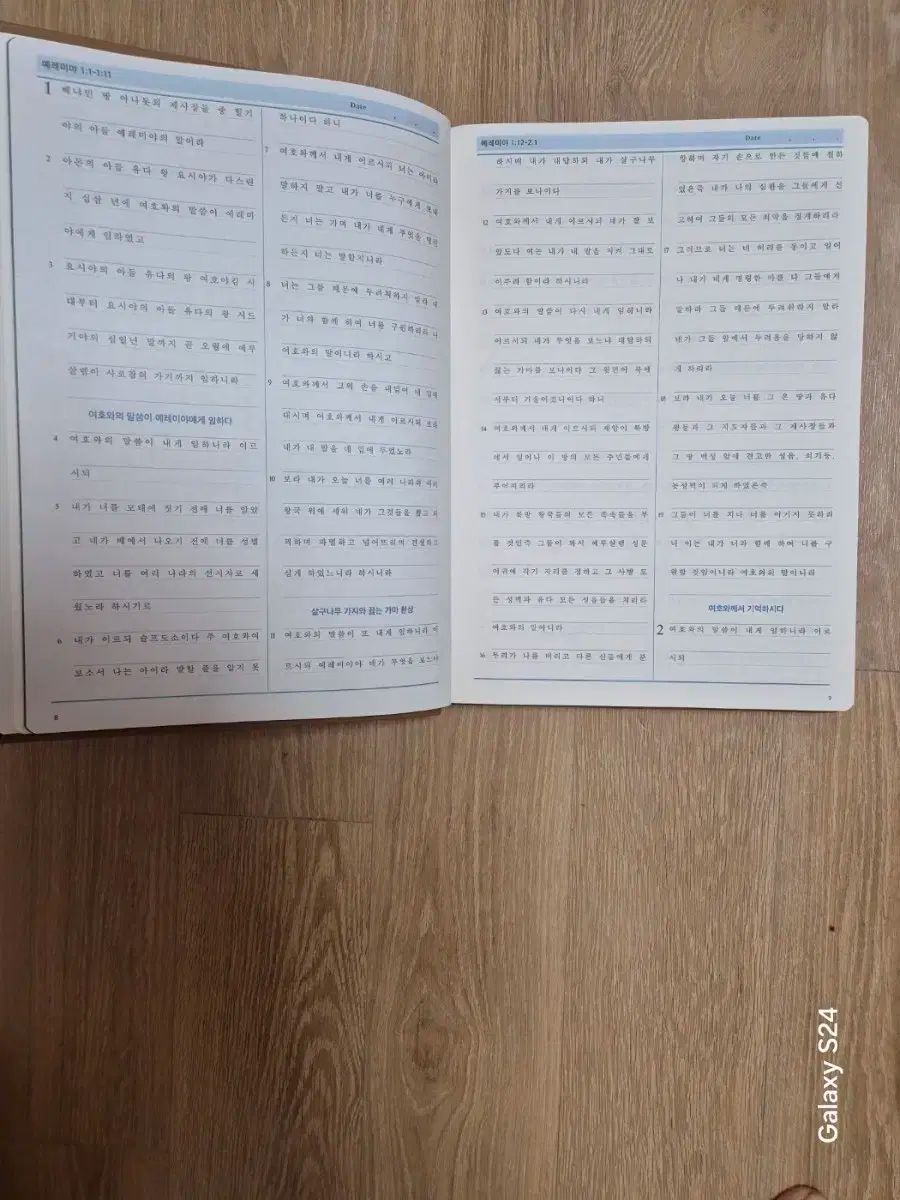 예레미야 1:1-1:11
Date . . .
1 베냐민 땅 아나돗의 제사장들 중 힐기
야의 아들 예레미야의 말이라
2 아몬의 아들 유다 왕 요시야가 다스린
지 십삼 년에 여호와의 말씀이 예레미
야에게 임하였고
3 요시야의 아들 유다의 왕 여호야김 시
대부터 요시야의 아들 유다의 왕 시드
기야의 십일년 말까지 곧 오월에 예루
살렘이 사로잡혀 가기까지 임하니라
여호와의 말씀이 예레미야에게 임하다
4 여호와의 말씀이 내게 임하니라 이르
시되
5 내가 너를 모태에 짓기 전에 너를 알았
고 네가 배에서 나오기 전에 너를 성별
하였고 너를 여러 나라의 선지자로 세
웠노라 하시기로
6 내가 이르되 슬프도소이다 주 여호와여
보소서 나는 아이라 말할 줄을 알지 못
하나이다 하니
7 여호와께서 내게 이르시되 너는 아이라
말하지 말고 내가 너를 누구에게 보내
든지 너는 가며 내가 네게 무엇을 명령
하든지 너는 말할지니라
8 너는 그들 때문에 두려워하지 말라 내
가 너와 함께 하여 너를 구원하리라 나
여호와의 말이니라 하시고
9 여호와께서 그의 손을 내밀어 내 입에
대시며 여호와께서 내게 이르시되 보라
내가 내 말을 네 입에 두었노라
10 보라 내가 오늘 너를 여러 나라와 여러
왕국 위에 세워 네가 그것들을 뽑고 파
괴하며 파멸하고 넘어뜨리며 건설하고
심게 하였느니라 하시니라
살구나무 가지와 끓는 가마 환상
11 여호와의 말씀이 또 내게 임하니라 이
르시되 예레미야야 네가 무엇을 보느냐
8
예레미야 1:12-2:1
Date . . .
하시매 내가 대답하되 내가 살구나무
가지를 보나이다
12 여호와께서 내게 이르시되 네가 잘 보
았도다 이는 내가 내 말을 지켜 그대로
이루려 함이라 하시니라
13 여호와의 말씀이 다시 내게 임하니라
이르시되 네가 무엇을 보느냐 대답하되
끓는 가마를 보나이다 그 윗면이 북에
서부터 기울어졌나이다 하니
14 여호와께서 내게 이르시되 재앙이 북방
에서 일어나 이 땅의 모든 주민들에게
부어지리라
15 내가 북방 왕국들의 모든 족속들을 부
를 것인즉 그들이 와서 예루살렘 성문
어귀에 각기 자리를 정하고 그 사방 모
든 성벽과 유다 모든 성읍들을 치리라
여호와의 말이니라
16 무리가 나를 버리고 다른 신들에게 분
향하며 자기 손으로 만든 것들에 절하
였은즉 내가 나의 심판을 그들에게 선
고하여 그들의 모든 죄악을 징계하리라
17 그러므로 너는 네 허리를 동이고 일어
나 내가 네게 명령한 바를 다 그들에게
말하라 그들 때문에 두려워하지 말라
네가 그들 앞에서 두려움을 당하지 않
게 하리라
18 보라 내가 오늘 너를 그 온 땅과 유다
왕들과 그 지도자들과 그 제사장들과
그 땅 백성 앞에 견고한 성읍, 쇠기둥,
놋성벽이 되게 하였은즉
19 그들이 너를 치나 너를 이기지 못하리
니 이는 내가 너와 함께 하여 너를 구
원할 것임이니라 여호와의 말이니라
여호와께서 기억하시다
2 여호와의 말씀이 내게 임하니라 이르
시되
9
Galaxy S24